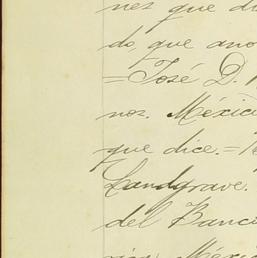 nez que di
do, que ano
=José D.
nos. México
que dice.=Te
Landgrave.
del Banco
México